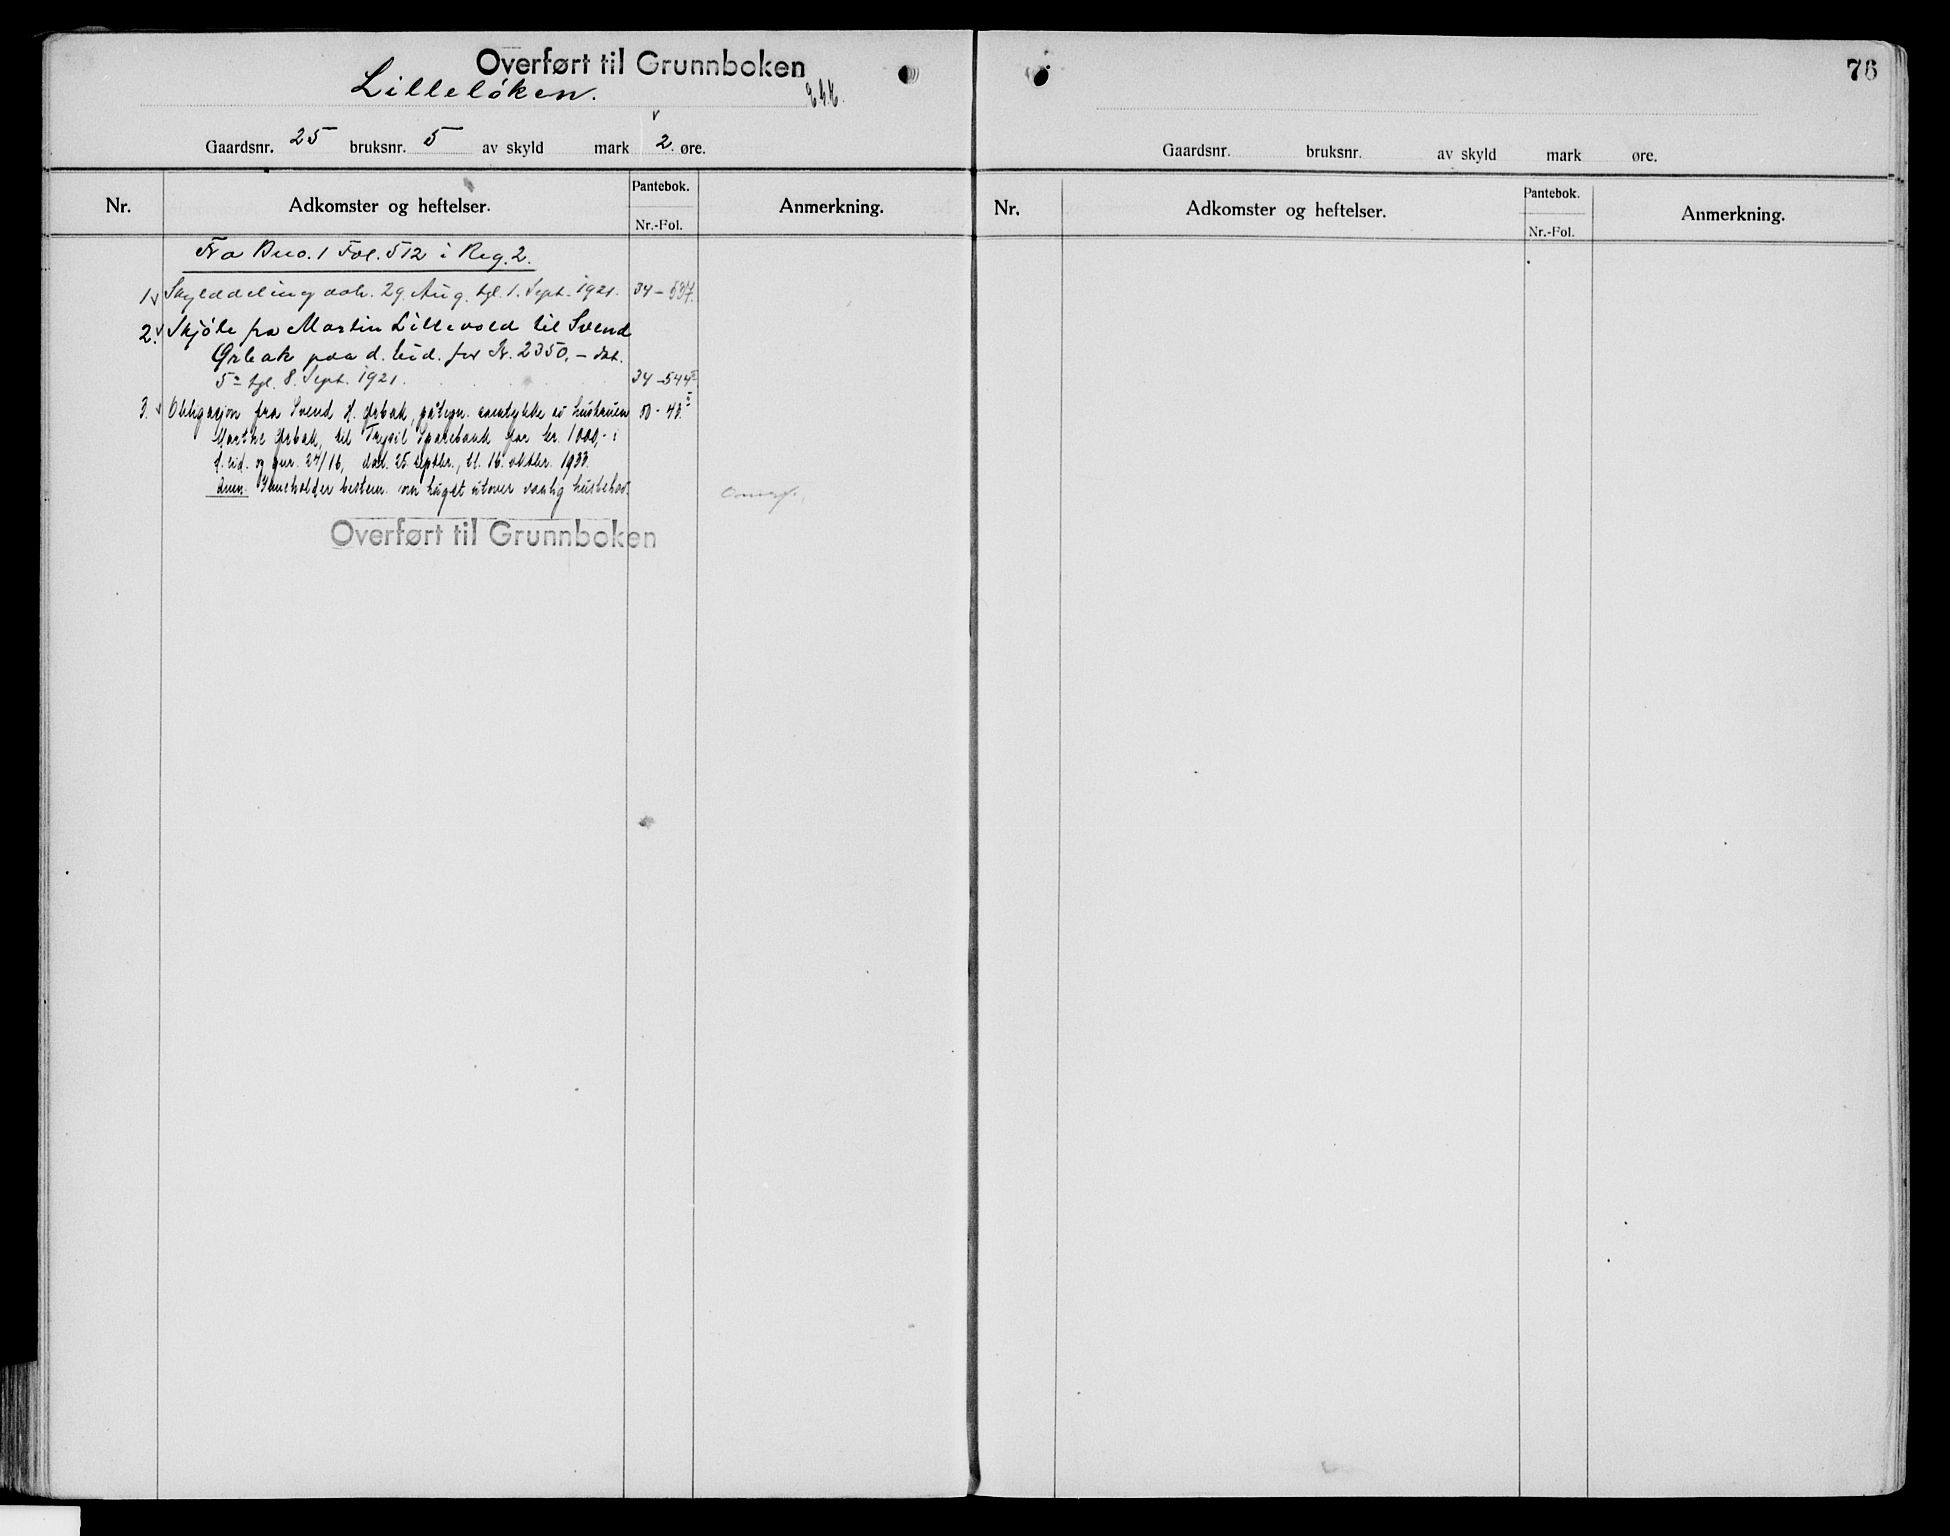 Overført til Grunnboken
Lilleløken.
Gaardsnr. 25 bruksnr. 5 av skyld mark 2 øre.
Nr. Adkomster og heftelser. Pantebok. Nr.-Fol. Anmerkning.
Fra Bno. 1 Fol. 512 i Reg. 2.
1. Skylddeling avh. 29. Aug. tgl. 1. Sept. 1921. 34-537.
2. Skjøte fra Martin Lillevold til Svend
Ørbak paa d. eid. for Kr. 2350.- dat.
5 tgl. 8. Sept. 1921. 34-544
3. Obligasjon fra Svend H. Ørbak, påtegn. samtykke av hustruen 50-43.
Marthe Ørbak, til Trysil Sparebank for kr. 1000,- i
d. eid. og gnr. 24/16, dat. 25. septbr., tl. 16. oktbr. 1933.
Anm. Inneholder bestem. om hugst utover vanlig husbehov.
Overført til Grunnboken
76
Gaardsnr. bruksnr. av skyld mark øre.
Nr. Adkomster og heftelser. Pantebok. Nr.-Fol. Anmerkning.